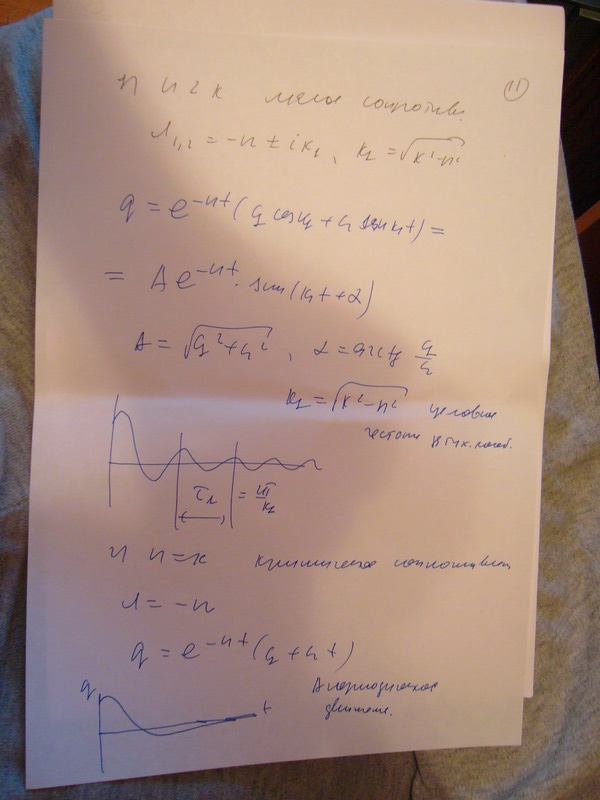 11
1) n < k малое сопротив.
λ₁,₂ = −n ± i k₁, k₁ = √(k² − n²)
q = e^(−nt) (C₁ cos k₁t + C₂ sin k₁t) =
= A e^(−nt) · sin(k₁t + α)
A = √(C₁² + C₂²), α = arctg C₁/C₂
k₁ = √(k² − n²)
частота
τ₁ = 2π/k₁
2) n = k критическое
λ = −n
q = e^(−nt) (C₁ + C₂ t)
q
t
Апериодическое
движение.